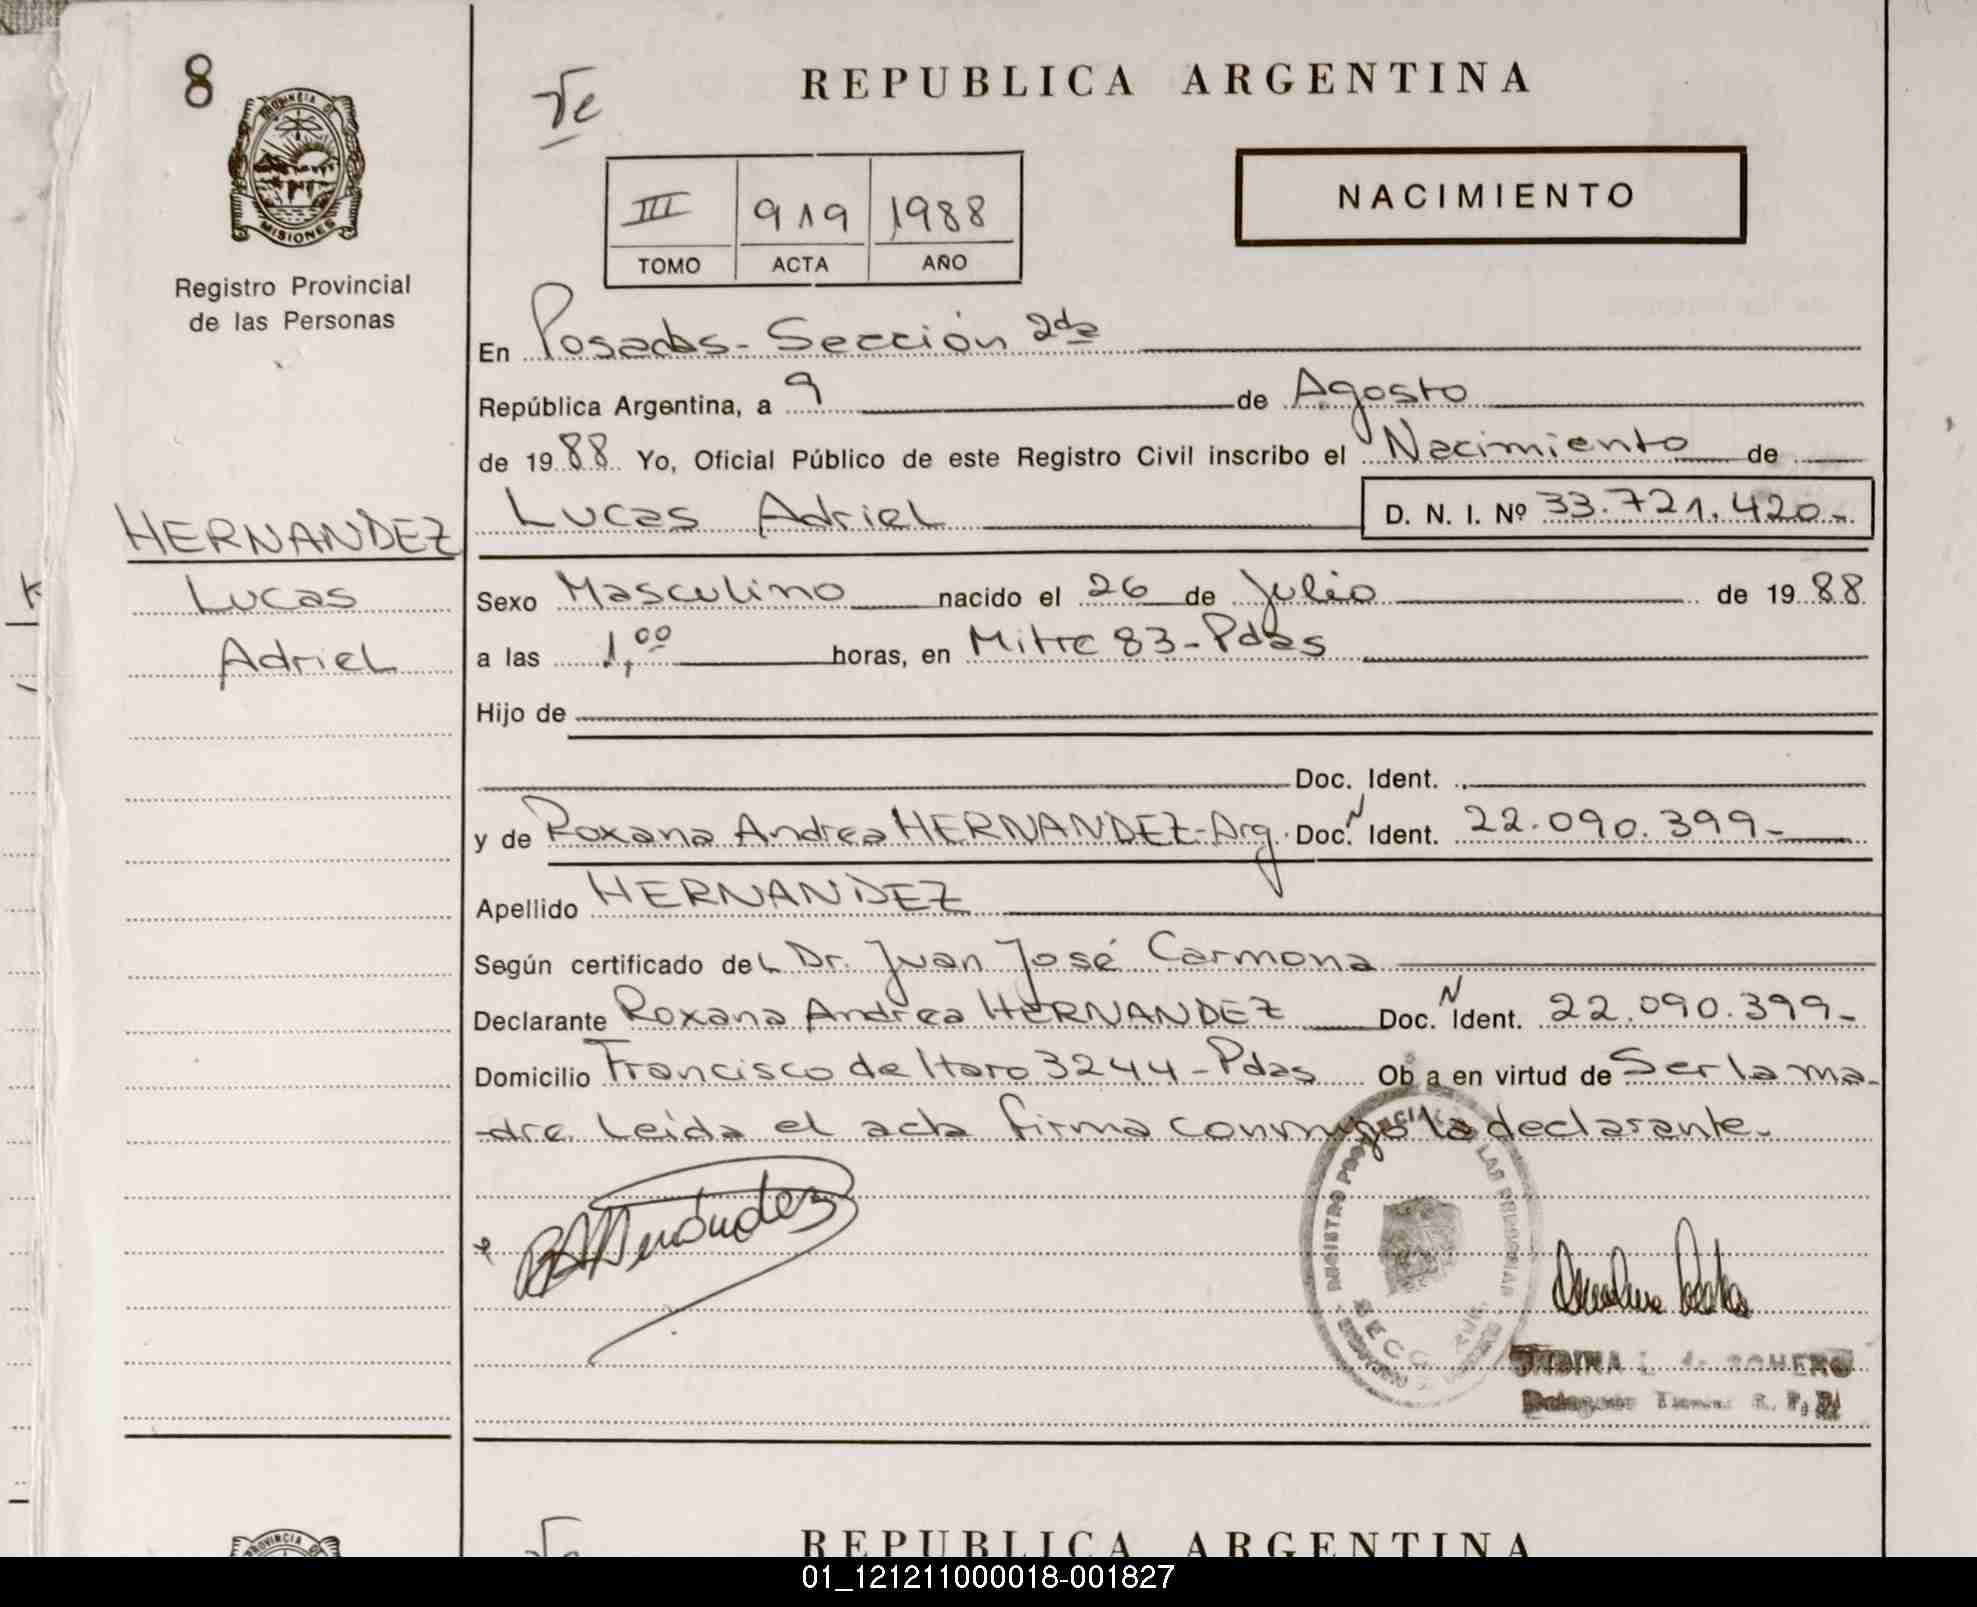 8
PROVINCIA DE
MISIONES
Registro Provincial
de las Personas
HERNANDEZ
Lucas
Adriel
REPUBLICA ARGENTINA
III 919 1988
TOMO ACTA AÑO
NACIMIENTO
En Posadas - Sección 2da
República Argentina, a 9 de Agosto
de 1988 Yo, Oficial Público de este Registro Civil inscribo el Nacimiento de
Lucas Adriel D. N. I. Nº 33.721.420-
Sexo Masculino nacido el 26 de Julio de 1988
a las 1,00 horas, en Mitre 83 - Pdas
Hijo de
Doc. Ident.
y de Roxana Andrea HERNANDEZ - Arg. Doc. N Ident. 22.090.399-
Apellido HERNANDEZ
Según certificado del Dr. Juan José Carmona
Declarante Roxana Andrea HERNANDEZ Doc. N Ident. 22.090.399-
Domicilio Francisco de Haro 3244 - Pdas Ob a en virtud de Ser la ma-
dre. Leída el acta firma conmigo la declarante.
REGISTRO PROVINCIAL LAS PERSONAS
SECC
ROMERO
PROVINCIA
REPUBLICA ARGENTINA
01_121211000018-001827